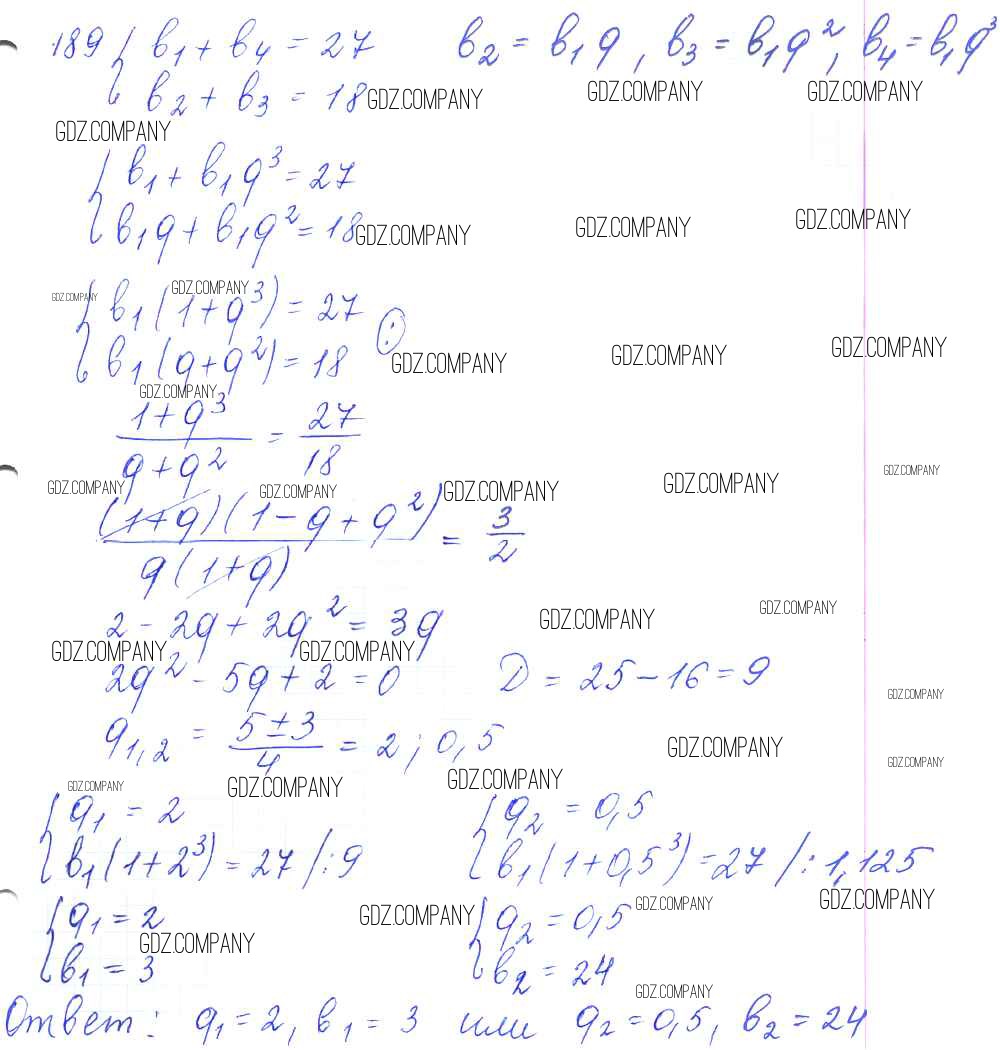 189 { b₁ + b₄ = 27    b₂ = b₁q, b₃ = b₁q², b₄ = b₁q³
{ b₂ + b₃ = 18 GDZ.COMPANY GDZ.COMPANY GDZ.COMPANY
GDZ.COMPANY
{ b₁ + b₁q³ = 27
{ b₁q + b₁q² = 18 GDZ.COMPANY GDZ.COMPANY GDZ.COMPANY
GDZ.COMPANY GDZ.COMPANY
{ b₁(1+q³) = 27
{ b₁(q+q²) = 18 (:) GDZ.COMPANY GDZ.COMPANY GDZ.COMPANY
GDZ.COMPANY
(1+q³)/(q+q²) = 27/18
GDZ.COMPANY GDZ.COMPANY GDZ.COMPANY GDZ.COMPANY GDZ.COMPANY
(1+q)(1-q+q²)/q(1+q) = 3/2
2 - 2q + 2q² = 3q GDZ.COMPANY GDZ.COMPANY
GDZ.COMPANY GDZ.COMPANY
2q² - 5q + 2 = 0    D = 25 - 16 = 9
GDZ.COMPANY
q₁,₂ = (5±3)/4 = 2; 0,5 GDZ.COMPANY GDZ.COMPANY
GDZ.COMPANY GDZ.COMPANY GDZ.COMPANY
{ q₁ = 2    { q₂ = 0,5
{ b₁(1+2³) = 27 /:9    { b₁(1+0,5³) = 27 /:1,125
{ q₁ = 2 GDZ.COMPANY { q₂ = 0,5 GDZ.COMPANY GDZ.COMPANY
GDZ.COMPANY
{ b₁ = 3    { b₂ = 24
GDZ.COMPANY
Ответ: q₁ = 2, b₁ = 3 или q₂ = 0,5, b₂ = 24